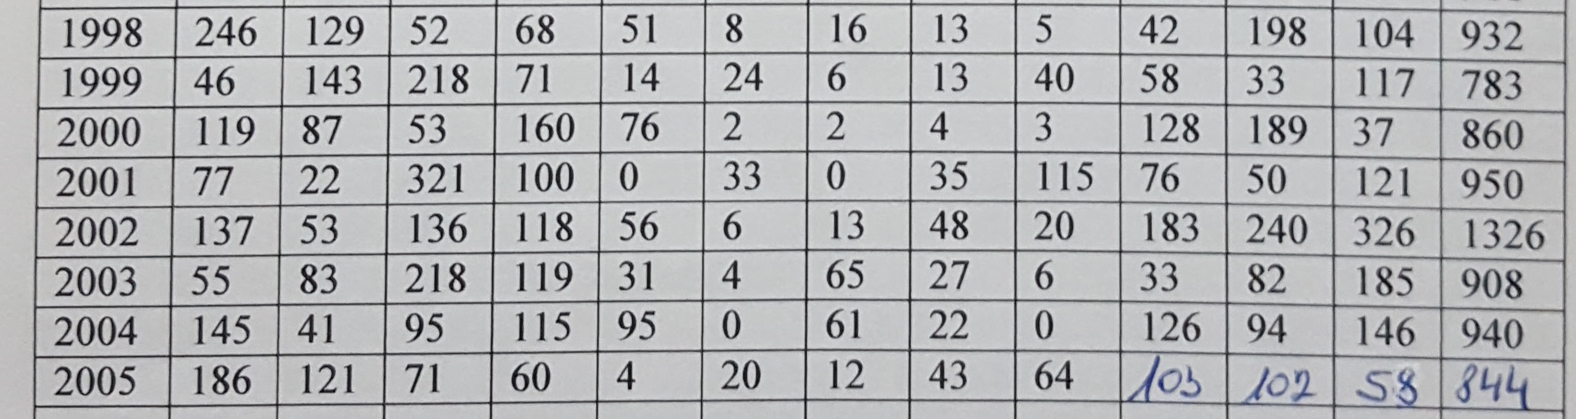 1998 246 129 52 68 51 8 16 13 5 42 198 104 932
1999 46 143 218 71 14 24 6 13 40 58 33 117 783
2000 119 87 53 160 76 2 2 4 3 128 189 37 860
2001 77 22 321 100 0 33 0 35 115 76 50 121 950
2002 137 53 136 118 56 6 13 48 20 183 240 326 1326
2003 55 83 218 119 31 4 65 27 6 33 82 185 908
2004 145 41 95 115 95 0 61 22 0 126 94 146 940
2005 186 121 71 60 4 20 12 43 64 103 102 58 844